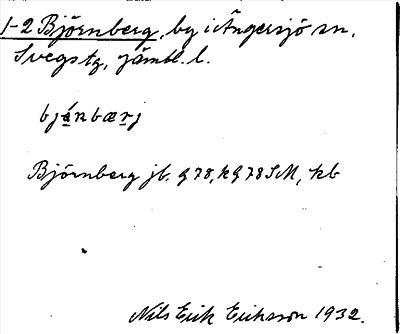 1-2 Björnberg, by i Ängersjö sn,
Svegs tg, jämtl. l.
bjánbærj
Björnberg jb. q 78, kq 78 SM, kb
Nils Erik Eriksson 1932.